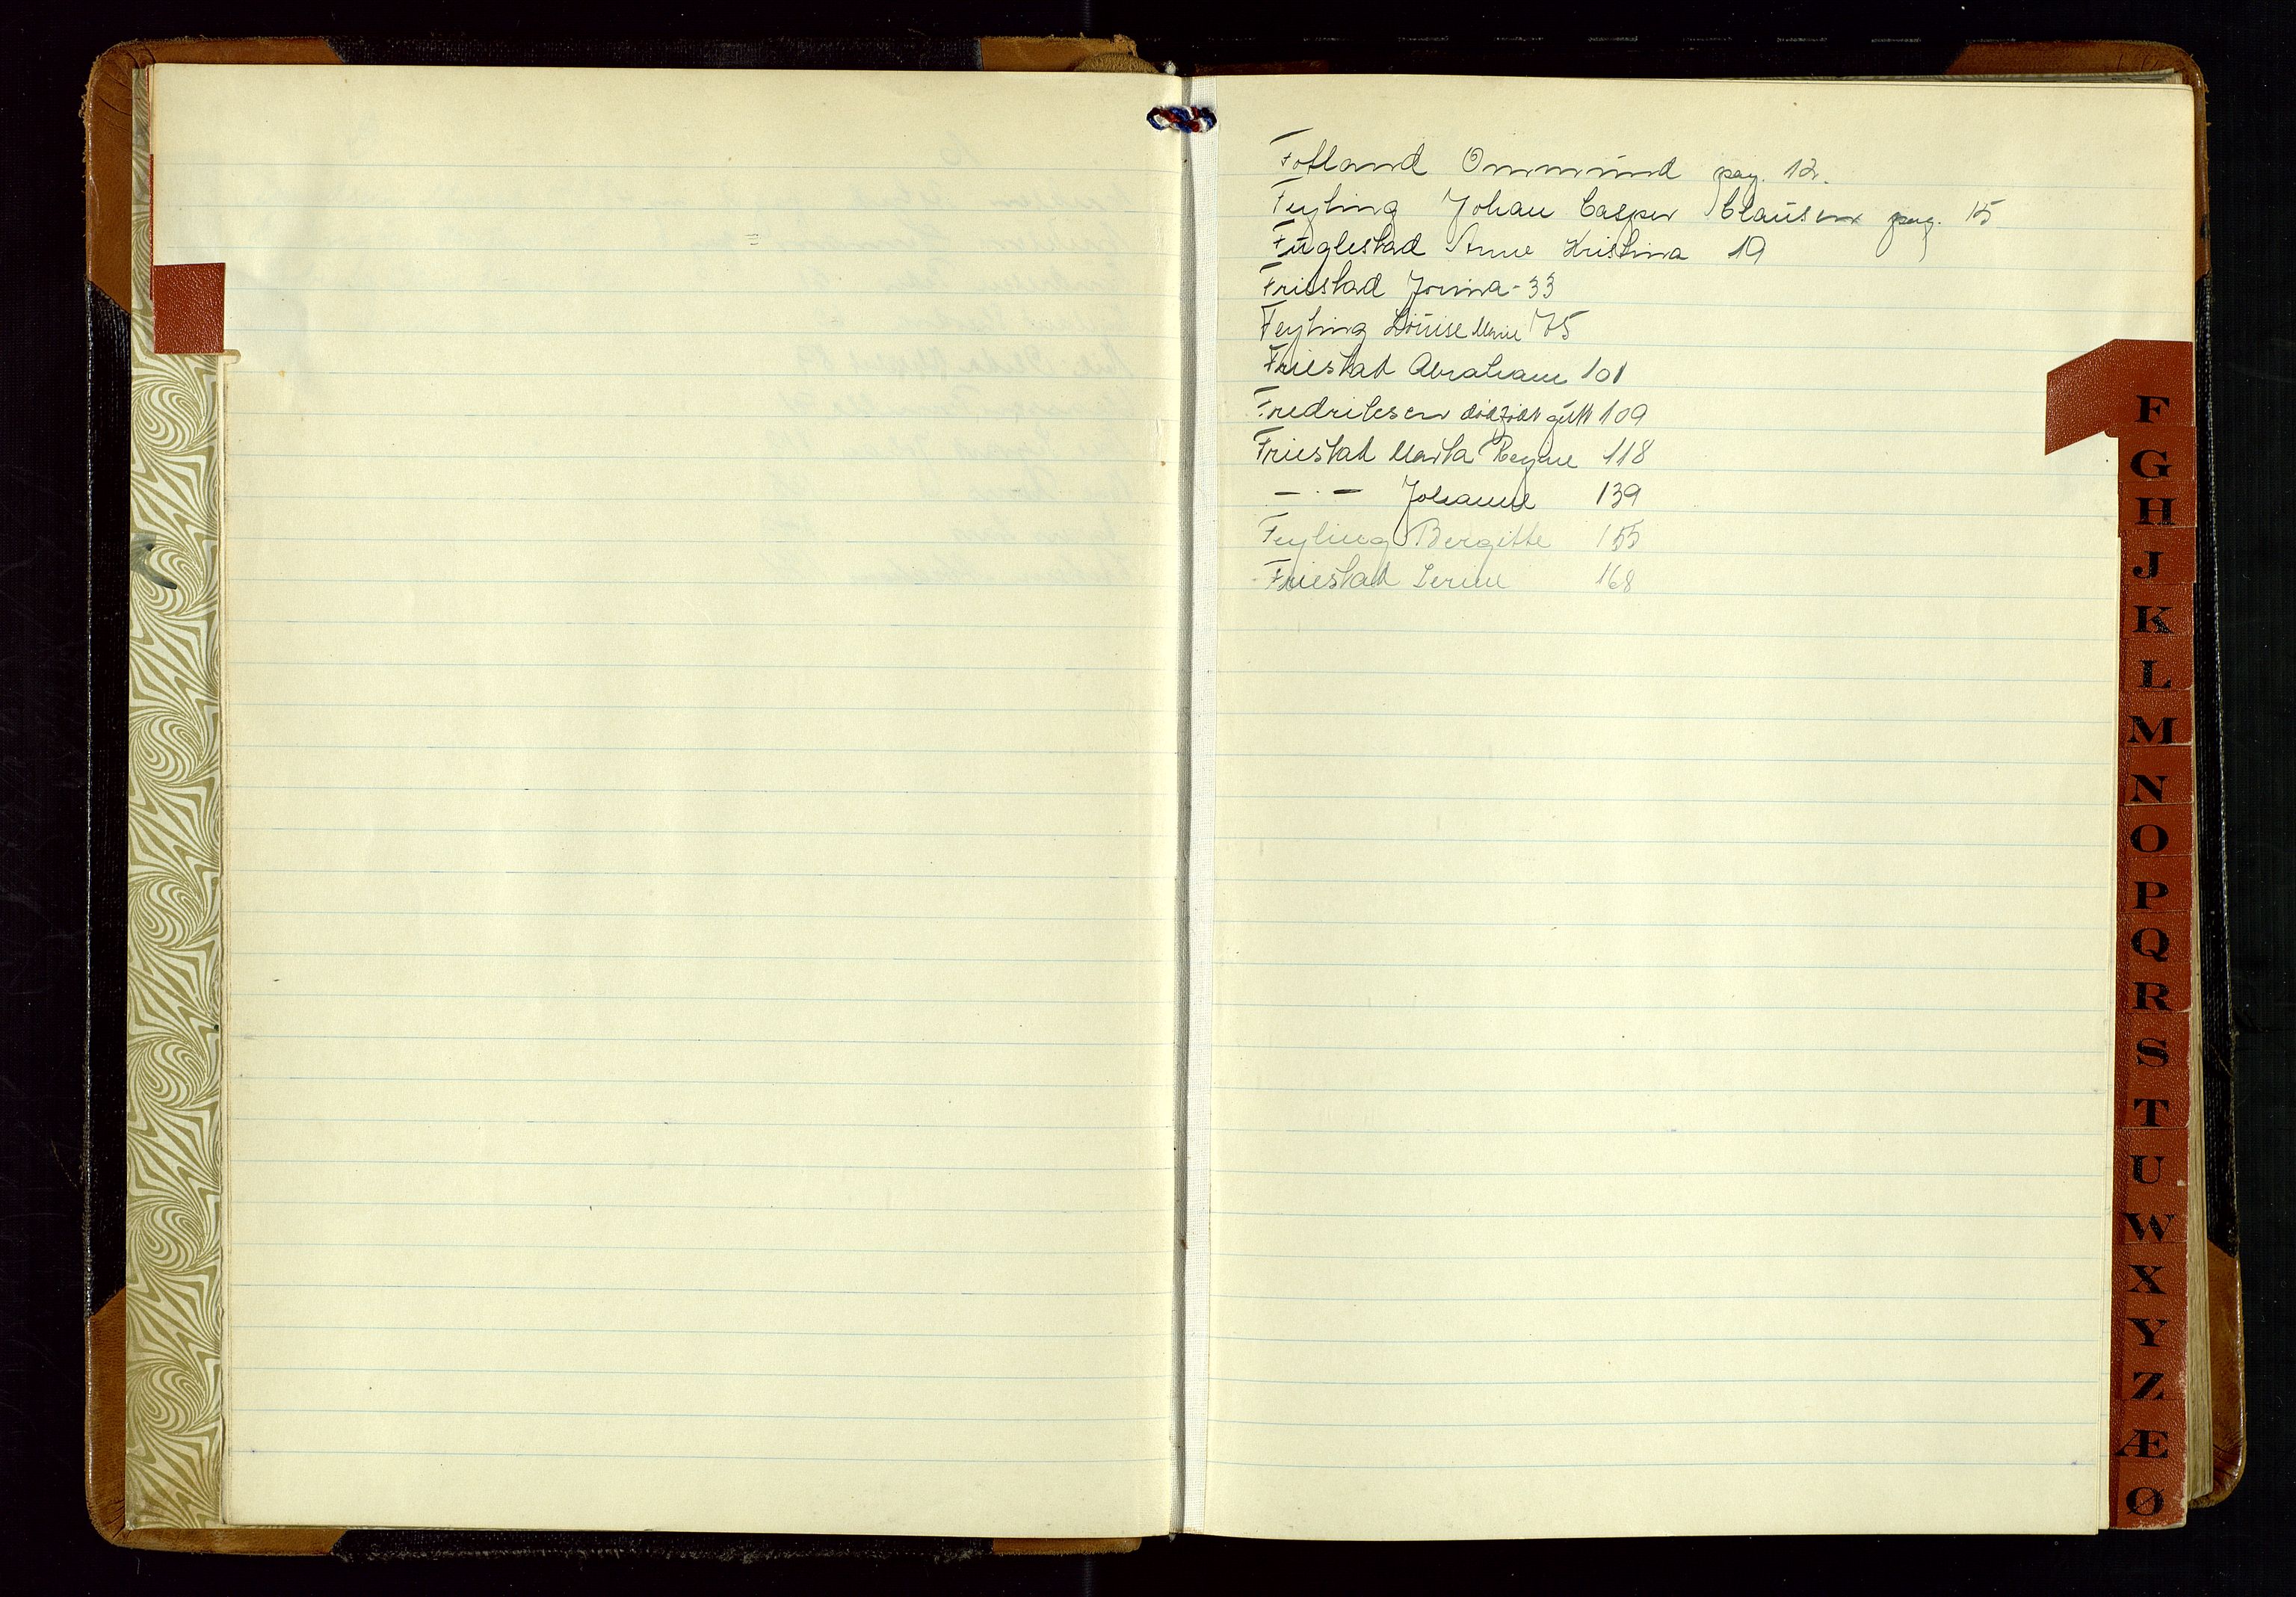 Fotland Ommund pag. 12.
Feyling Johan Casper Clausen pag. 15
Fuglestad Anne Kristina 19
Friestad Jorina - 33
Feyling Louise Marie 75
Friestad Abraham 101
Fredriksen dødfødt gutt 109
Friestad Marta Regine 118
— · — Johanne 139
Feyling Bergitte 155
Friestad Serine 168
F
G
H
J
K
L
M
N
O
P
Q
R
S
T
U
W
X
Y
Z
Æ
Ø